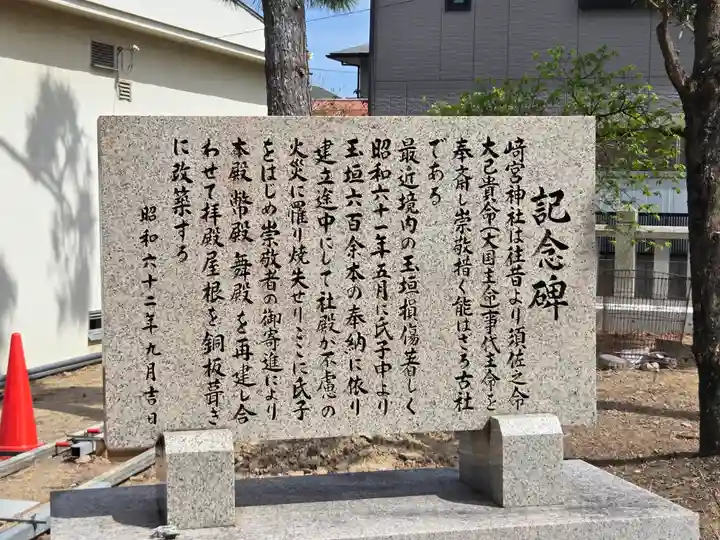 記念碑
﨑宮神社は往昔より須佐之命
大己貴命(大国主命)事代主命を
奉斎し崇敬措く能はざる古社
である
最近境内の玉垣損傷著しく
昭和六十一年五月に氏子中より
玉垣六百余本の奉納に依り
建立途中にして社殿が不慮の
火災に罹り焼失せりここに氏子
をはじめ崇敬者の御寄進により
本殿幣殿舞殿を再建し合
わせて拝殿屋根を銅板葺き
に改築する
昭和六十二年九月吉日